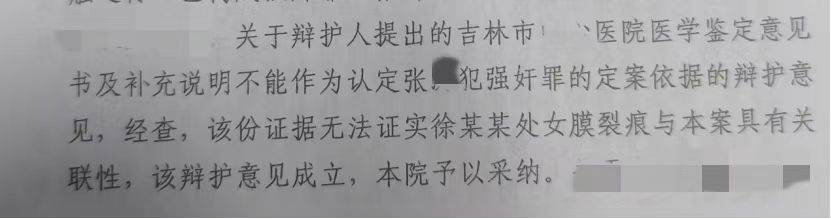 关于辩护人提出的吉林市 医院医学鉴定意见
书及补充说明不能作为认定张 犯强奸罪的定案依据的辩护意
见，经查，该份证据无法证实徐某某处女膜裂痕与本案具有关
联性，该辩护意见成立，本院予以采纳。